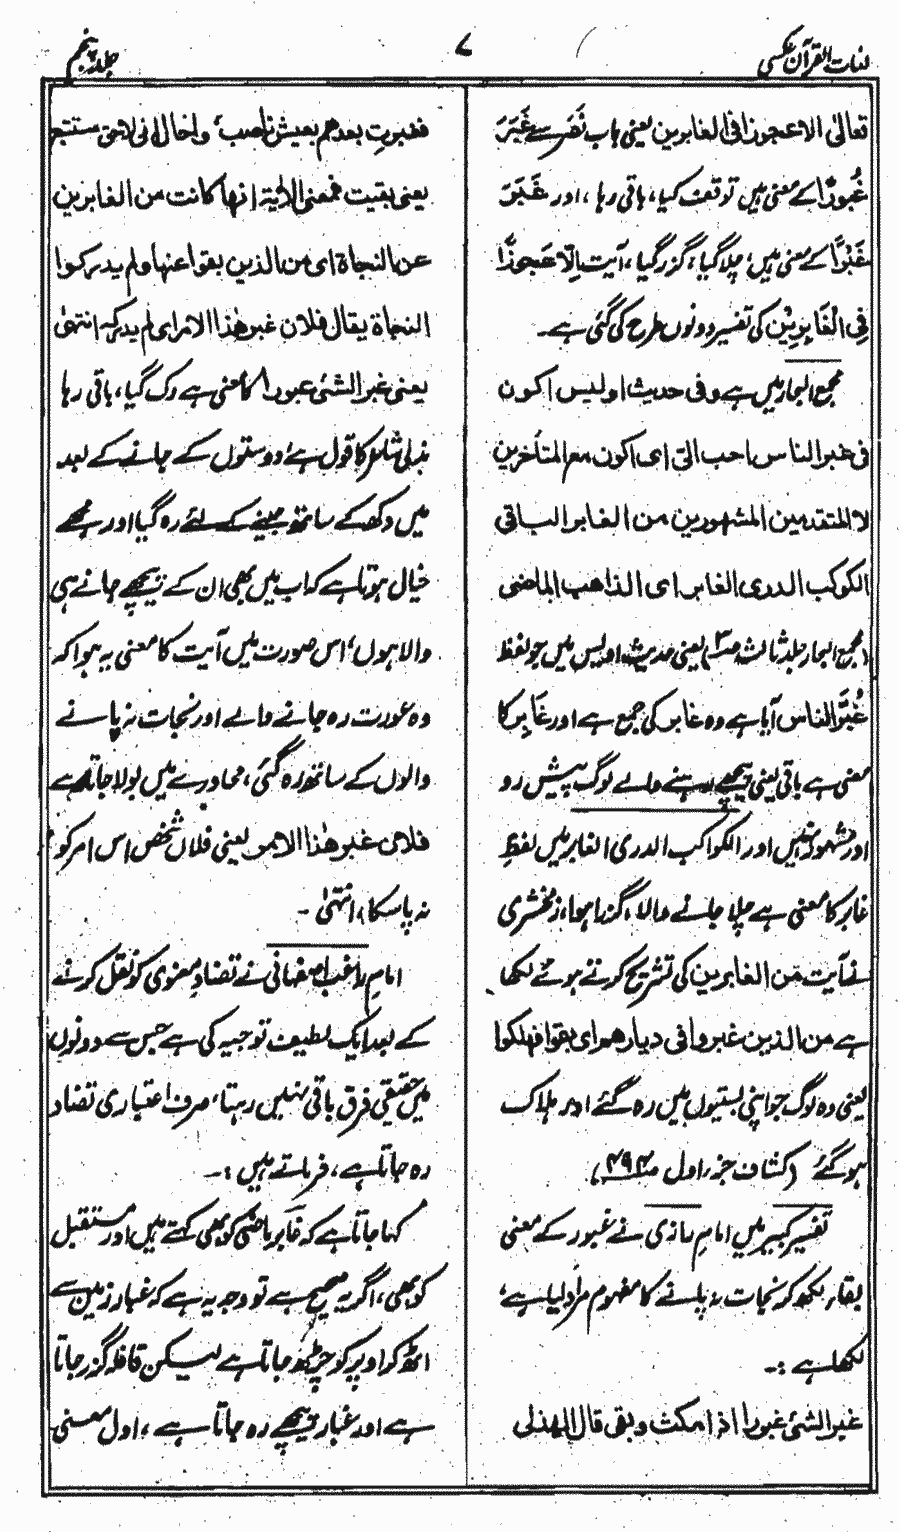 لغات القرآن عکسی
۷
جلد پنجم
تعالیٰ الا عجوزا فی الغابرین یعنی باب نَصَر سے غَبَرَ
غُبُورًا کے معنی ہیں توقف کیا، باقی رہا، اور غَبَرَ
غَبْرًا کے معنی ہیں، چلا گیا، گزر گیا، آیت اِلّا عَجوزًا
فِی الْغَابِرِیْن کی تفسیر دونوں طرح کی گئی ہے۔
مجمع البحار میں ہے وفی حدیث اولیس اکون
فی غبر الناس احب الیّ ای اکون مع المتأخرین
لا المتقدمین المشہورین من الغابر الباقی
الکوکب الدری الغابر ای الذاهب الماضی
(مجمع البحار جلد ثالث) یعنی حدیث اویس میں جو لفظ
غُبَّرالناس آیا ہے وہ غابر کی جمع ہے اور غَابِر کا
معنی ہے باقی یعنی پیچھے رہنے والے لوگ پیش رو
اور مشہور نہیں اور الکواکب الدری الغابر میں لفظِ
غابر کا معنی ہے چلا جانے والا، گزرا ہوا، زمخشری
نے آیت مَن الغابرین کی تشریح کرتے ہوئے لکھا
ہے من الذین غبروا فی دیارهم ای بقوا فهلکوا
یعنی وہ لوگ جو اپنی بستیوں میں رہ گئے اور ہلاک
ہو گئے (کشاف جزء اول ص۴۹۴)
تفسیر کبیر میں امام رازی نے غبور کے معنی
بقاء لکھ کر نجات نہ پانے کا مفہوم مراد لیا ہے،
لکھا ہے :۔
غبر الشئ غبورا اذا مکث وبقی قال الهذلی
فغبرت بعدهم بعیش ناصب، واخال انی لاحق مستتبع
یعنی بقیت فمعنی الآیة انها کانت من الغابرین
عن النجاة ای من الذین بقوا عنها ولم یدرکوا
النجاة یقال فلان غبر هٰذا الامر ای لم یدرکہ انتهیٰ
یعنی غبر الشئ غبورا کا معنی ہے رک گیا، باقی رہا
ہذلی شاعر کا قول ہے، دوستوں کے جانے کے بعد
میں دکھ کے ساتھ جینے کے لئے رہ گیا اور مجھے
خیال ہوتا ہے کہ اب میں بھی ان کے پیچھے جانے ہی
والا ہوں، اس صورت میں آیت کا معنی یہ ہوا کہ
وہ عورت رہ جانے والے اور نجات نہ پانے
والوں کے ساتھ رہ گئی، محاورے میں بولا جاتا ہے
فلان غبر هٰذا الامر یعنی فلاں شخص اس امر کو
نہ پاسکا، انتہیٰ۔
امام راغب اصفہانی نے تضادِ معنوی کو نقل کرنے
کے بعد ایک لطیف توجیہ کی ہے جس سے دونوں
میں حقیقی فرق باقی نہیں رہتا، صرف اعتباری تضاد
رہ جاتا ہے، فرماتے ہیں :۔
کہا جاتا ہے کہ غابر ماضی کو بھی کہتے ہیں اور مستقبل
کو بھی، اگر یہ صحیح ہے تو وجہ یہ ہے کہ غبار زمین سے
اٹھ کر اوپر کو چڑھ جاتا ہے لیکن قافلہ گزر جاتا
ہے اور غبار پیچھے رہ جاتا ہے، اول معنی